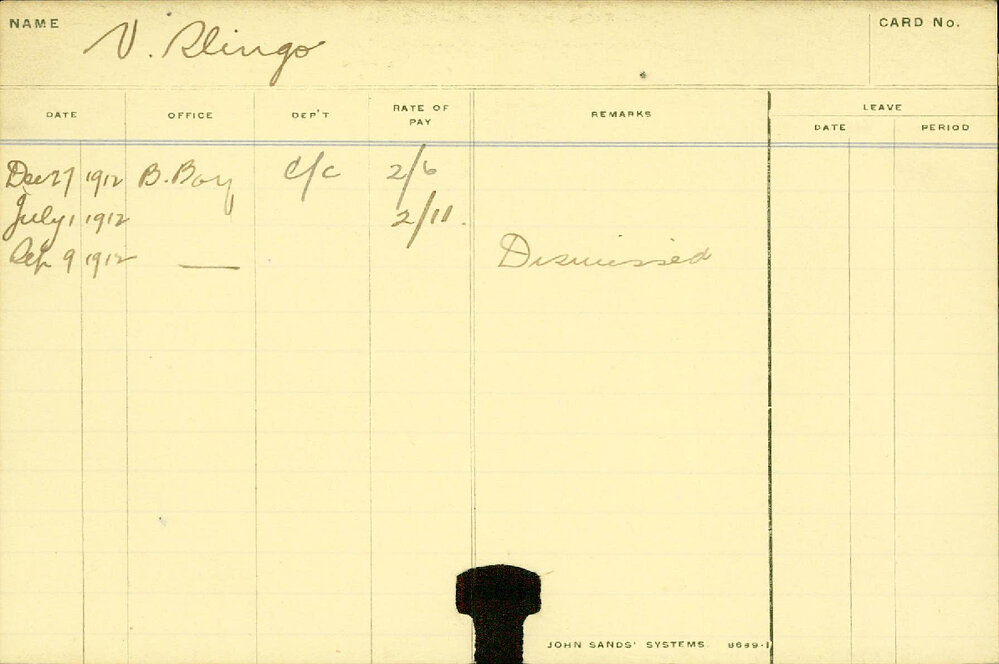 NAME V. Slingo CARD No.
DATE OFFICE DEP'T RATE OF PAY REMARKS LEAVE
DATE PERIOD
Dec 27 1912 B. Boy C/C 2/6
July 1 1912 2/11.
Sep 9 1912 — Dismissed
JOHN SANDS' SYSTEMS. 8689-1